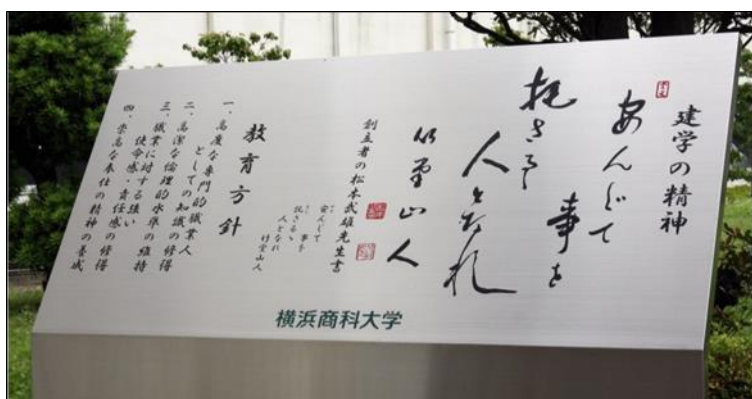 建学の精神
安んじて
事を
託さるゝ
人となれ
山人
創立者の松本武雄先生書
安んじて
事を
託さるゝ
人となれ
山人
教育方針
一、高度な専門的職業人
としての知識の修得
二、高潔な倫理的水準の維持
三、職業に対する強い
使命感・責任感の修得
四、崇高な奉仕の精神の養成
横浜商科大学